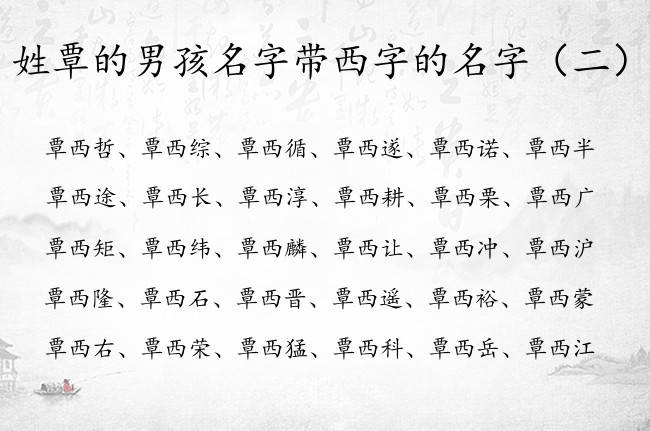 姓覃的男孩名字带西字的名字（二）
覃西哲、覃西综、覃西循、覃西遂、覃西诺、覃西半
覃西途、覃西长、覃西淳、覃西耕、覃西栗、覃西广
覃西矩、覃西纬、覃西麟、覃西让、覃西冲、覃西沪
覃西隆、覃西石、覃西晋、覃西遥、覃西裕、覃西蒙
覃西右、覃西荣、覃西猛、覃西科、覃西岳、覃西江